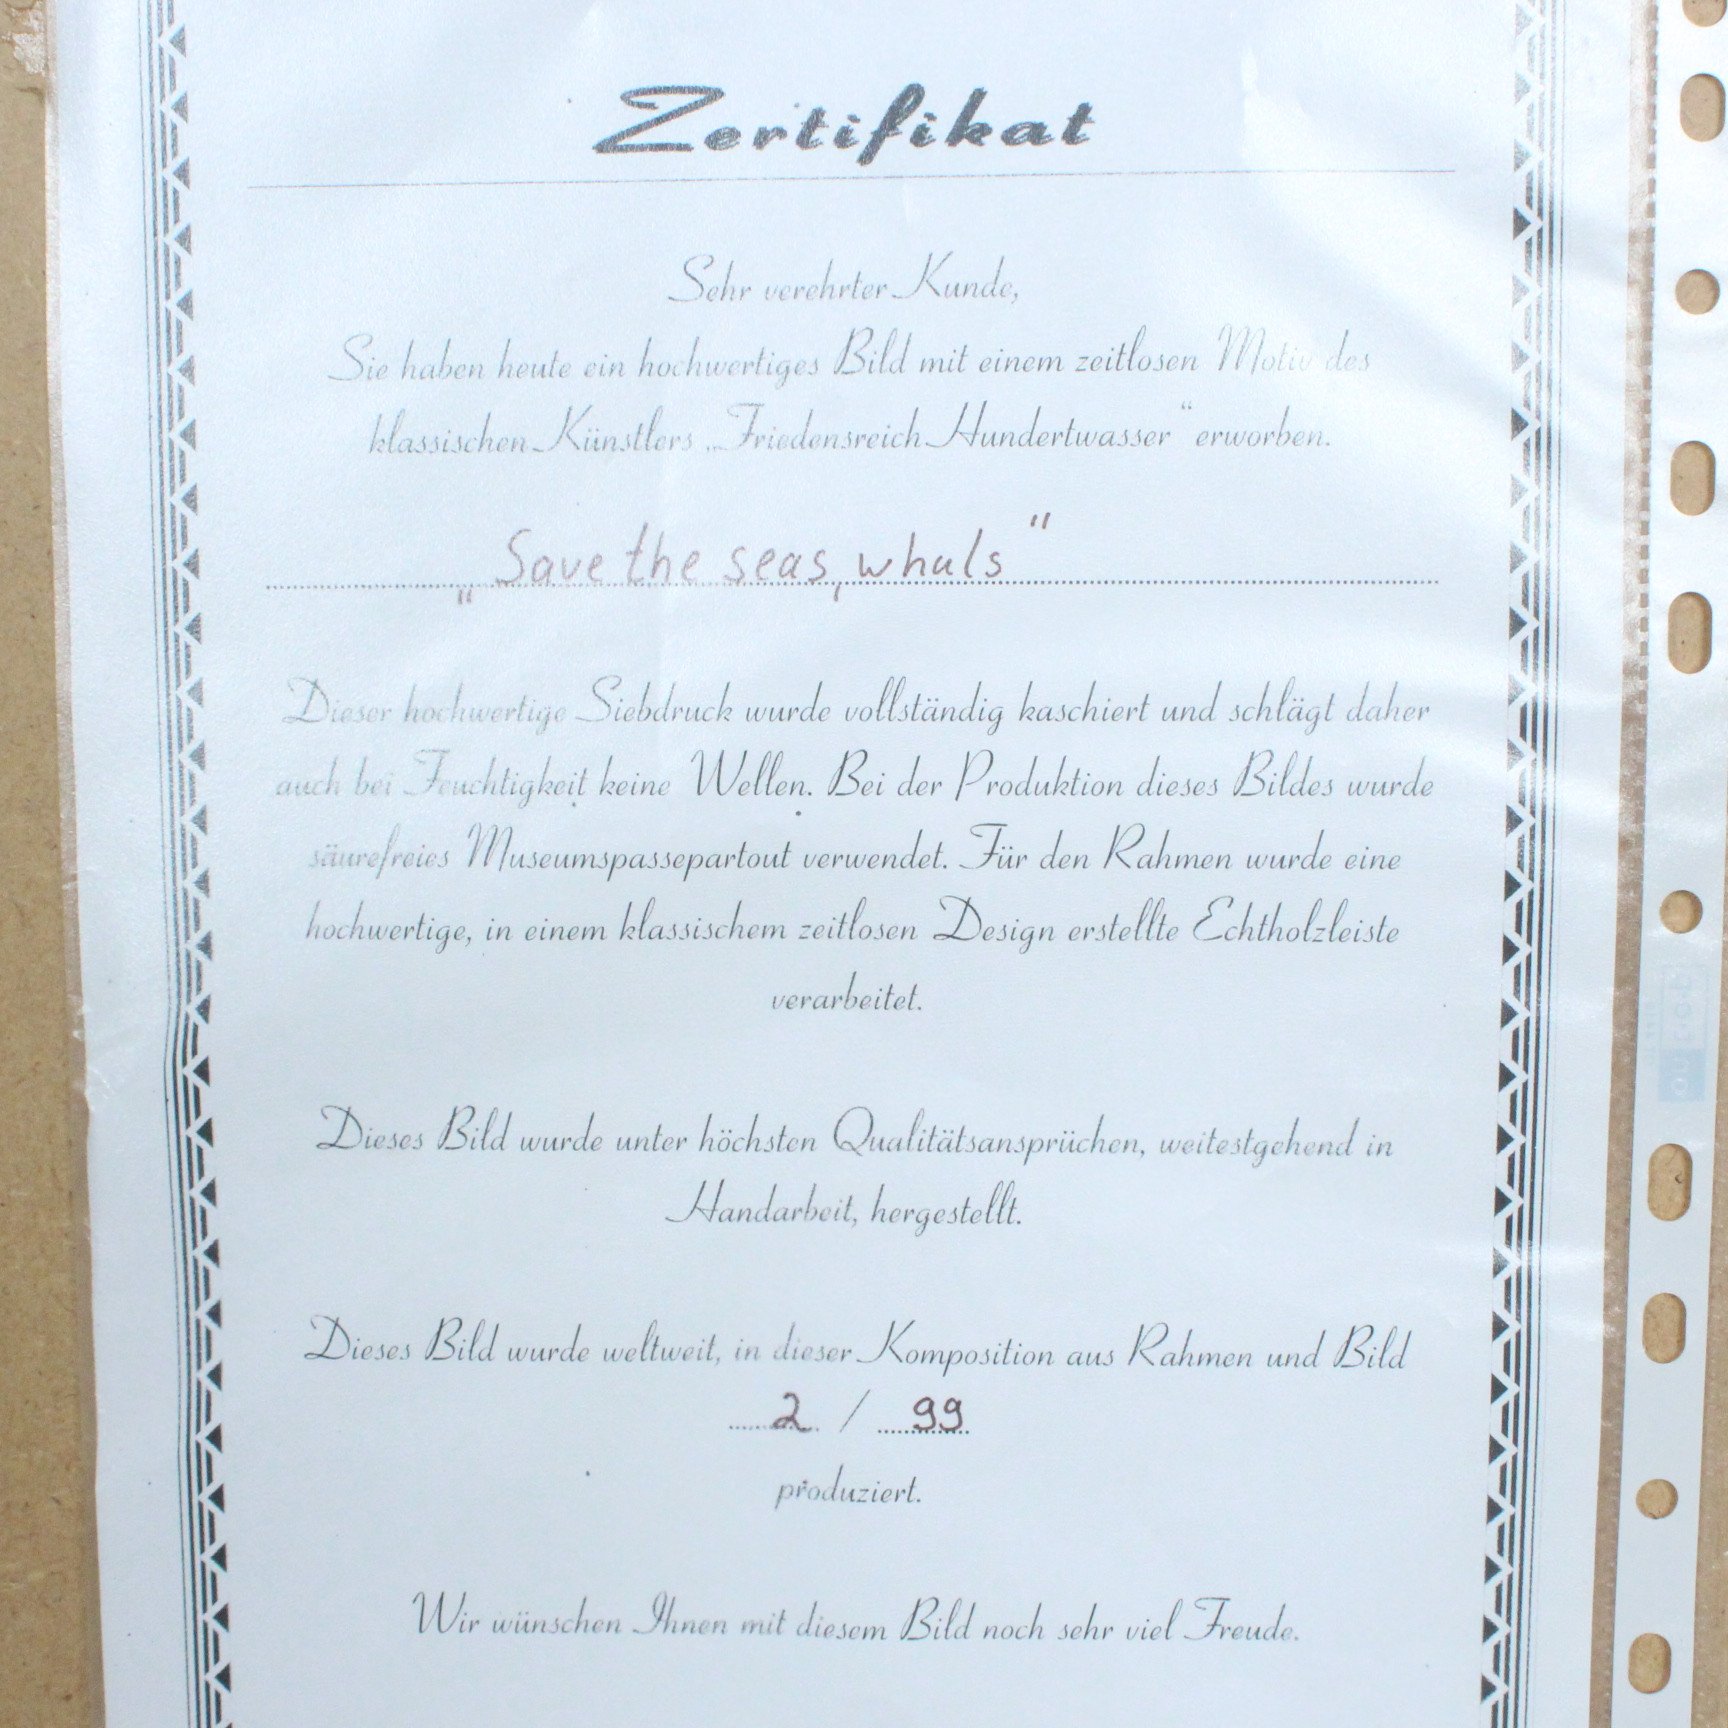 Zertifikat
Sehr verehrter Kunde,
Sie haben heute ein hochwertiges Bild mit einem zeitlosen Motiv des
klassischen Künstlers „Friedensreich Hundertwasser“ erworben.
„Save the seas, whals“
Dieser hochwertige Siebdruck wurde vollständig kaschiert und schlägt daher
auch bei Feuchtigkeit keine Wellen. Bei der Produktion dieses Bildes wurde
säurefreies Museumspassepartout verwendet. Für den Rahmen wurde eine
hochwertige, in einem klassischem zeitlosen Design erstellte Echtholzleiste
verarbeitet.
Dieses Bild wurde unter höchsten Qualitätsansprüchen, weitestgehend in
Handarbeit, hergestellt.
Dieses Bild wurde weltweit, in dieser Komposition aus Rahmen und Bild
2 / 99
produziert.
Wir wünschen Ihnen mit diesem Bild noch sehr viel Freude.